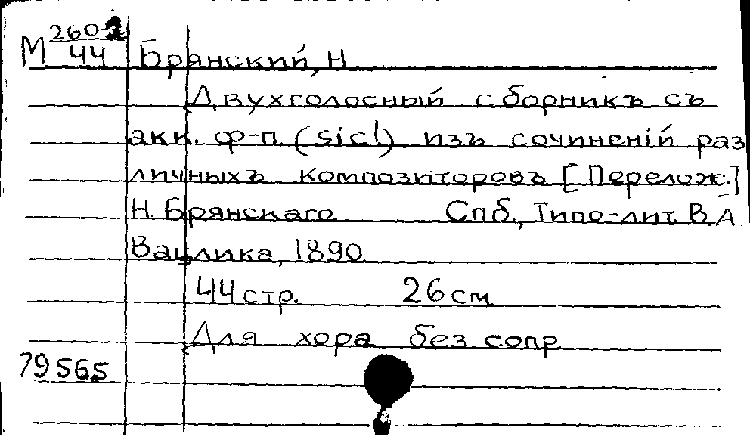 М 260-2
44
Брянский, Н
Двухголосный сборникъ съ
акк. ф-п. (sic!) изъ сочиненій раз
личныхъ композиторовъ [Перелож.]
Н. Брянскаго Спб., Типо-лит. В.А
Вацлика, 1890
44 стр. 26 см
Для хора без сопр
79565